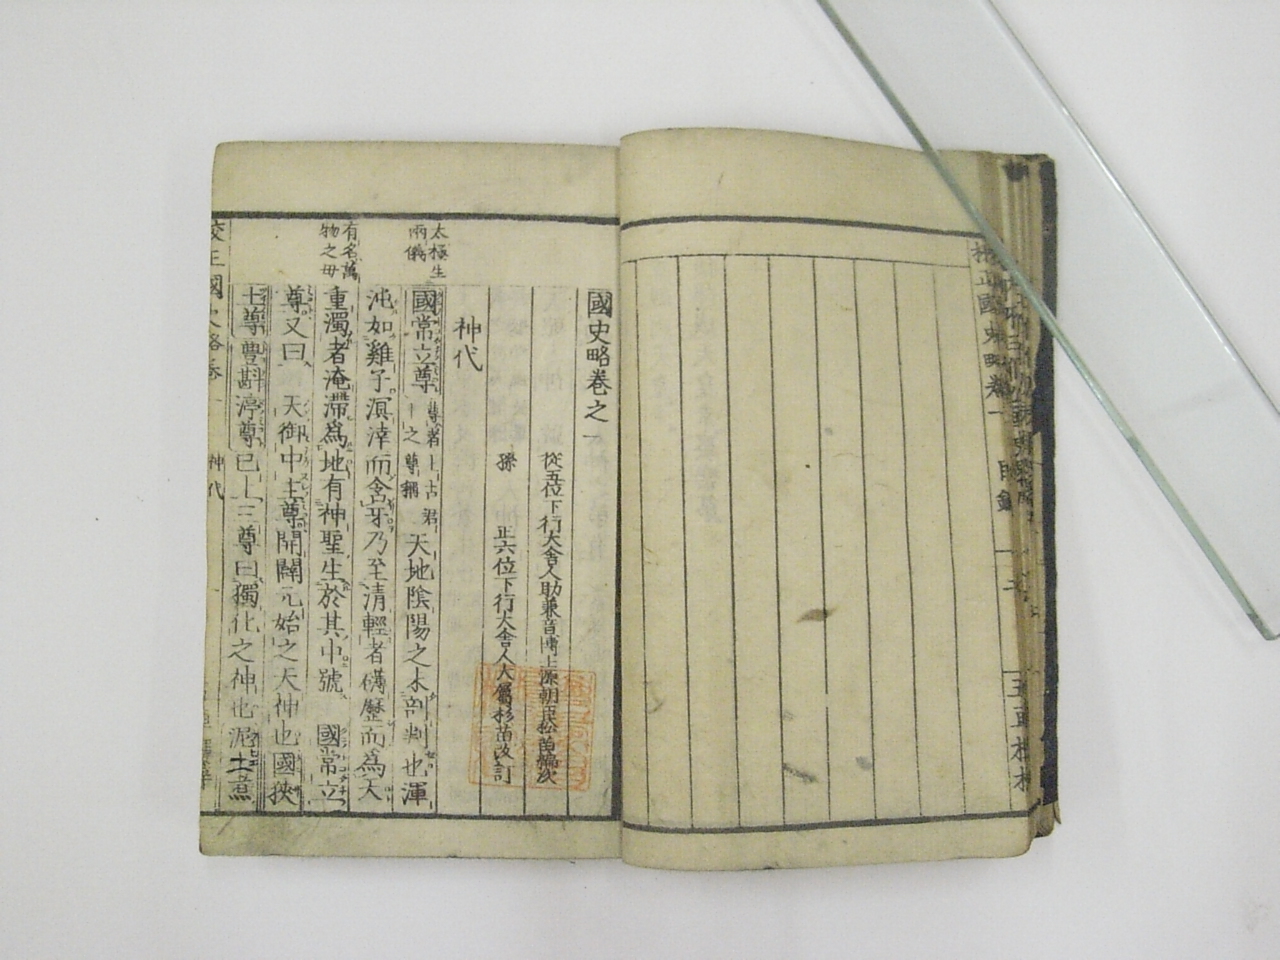 國史略卷之一
從五位下行大舍人助兼音博士源朝臣松苗編次
孫 正六位下行大舍人大屬杉苗改訂
神代
太極生
兩儀
國常立尊
尊者上古君
之尊稱
天地陰陽之未剖判也渾
沌如雞子溟涬而含牙乃至清輕者礴歷而為天
有名萬
物之母
重濁者淹滯為地有神聖生於其中號 國常立
尊又曰 天御中主尊開闢元始之天神也國狹
土尊豐斟渟尊已上三尊曰獨化之神也泥土煮
校正國史略卷一 神代
校正國史略卷一 目錄
五車樓梓